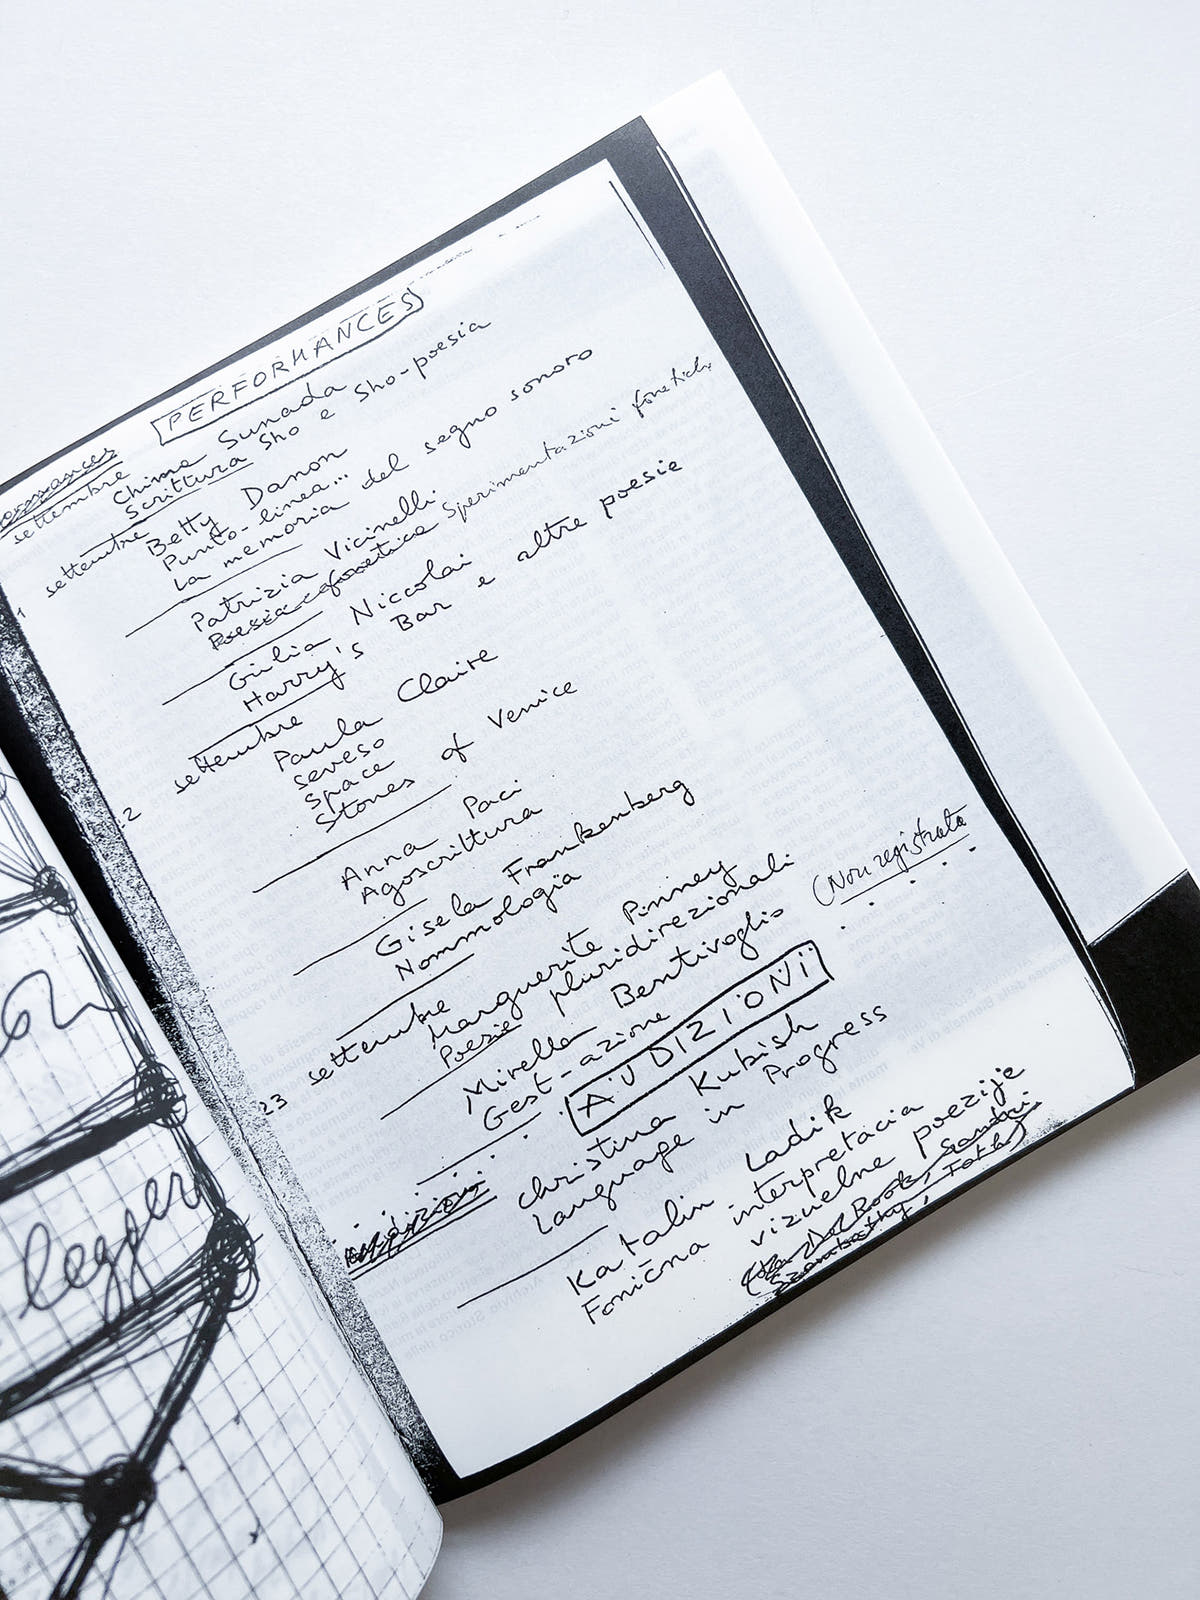 PERFORMANCES
settembre
Chima Sunada
Scrittura Sho e Sho-poesia
settembre
Betty Danon
Punto-linea...
La memoria del segno sonoro
1
Patrizia Vicinelli
Poesia fonetica Sperimentazioni
Giulia Niccolai
Harry's Bar e altre poesie
settembre
Paula Claire
seveso
space
Stones of Venice
2
Anna Paci
Agoscrittura
Gisela Frankenberg
Nommologia
settembre
Marguerite Pinney
Poesie pluridirezionali
23
Mirella Bentivoglio (Non registrata
Gest-azione
AUDIZIONI
Audizioni
Christina Kubish
Language in Progress
Katalin Ladik
Fonična interpretacia
vizuelne poezije
leggere